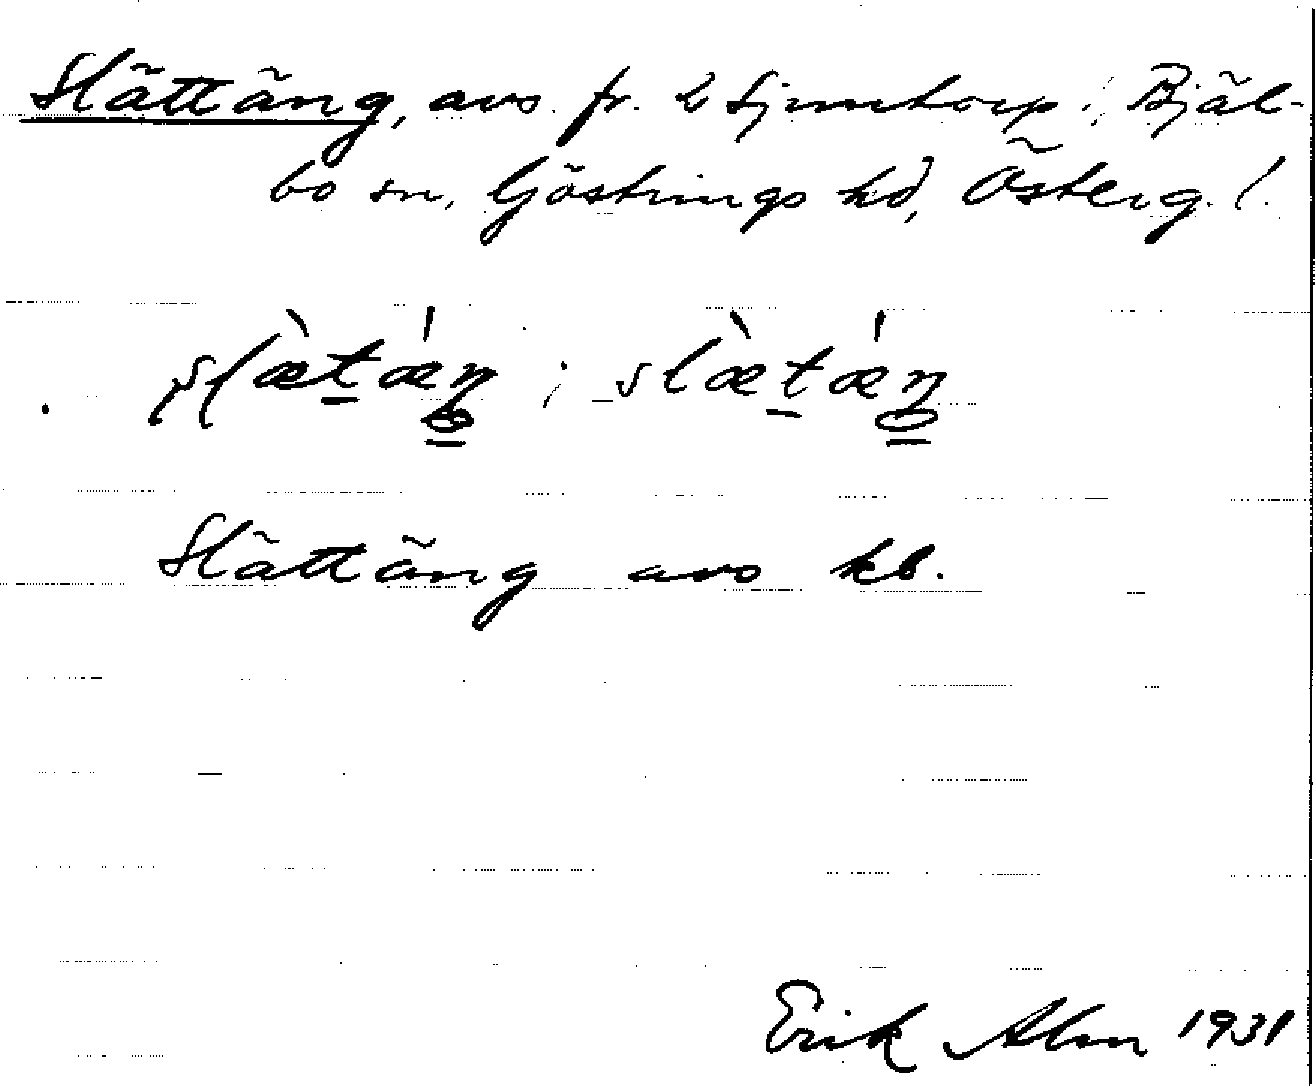 Slättäng, avs. fr. 2 Sjuntorp i Bjäl-
bo sn, Göstrings hd, Österg. l.
slæ̀tæ̀ŋ ; slæ̀tæ̀ŋ
Slättäng avs kb.
Erik Alm 1931